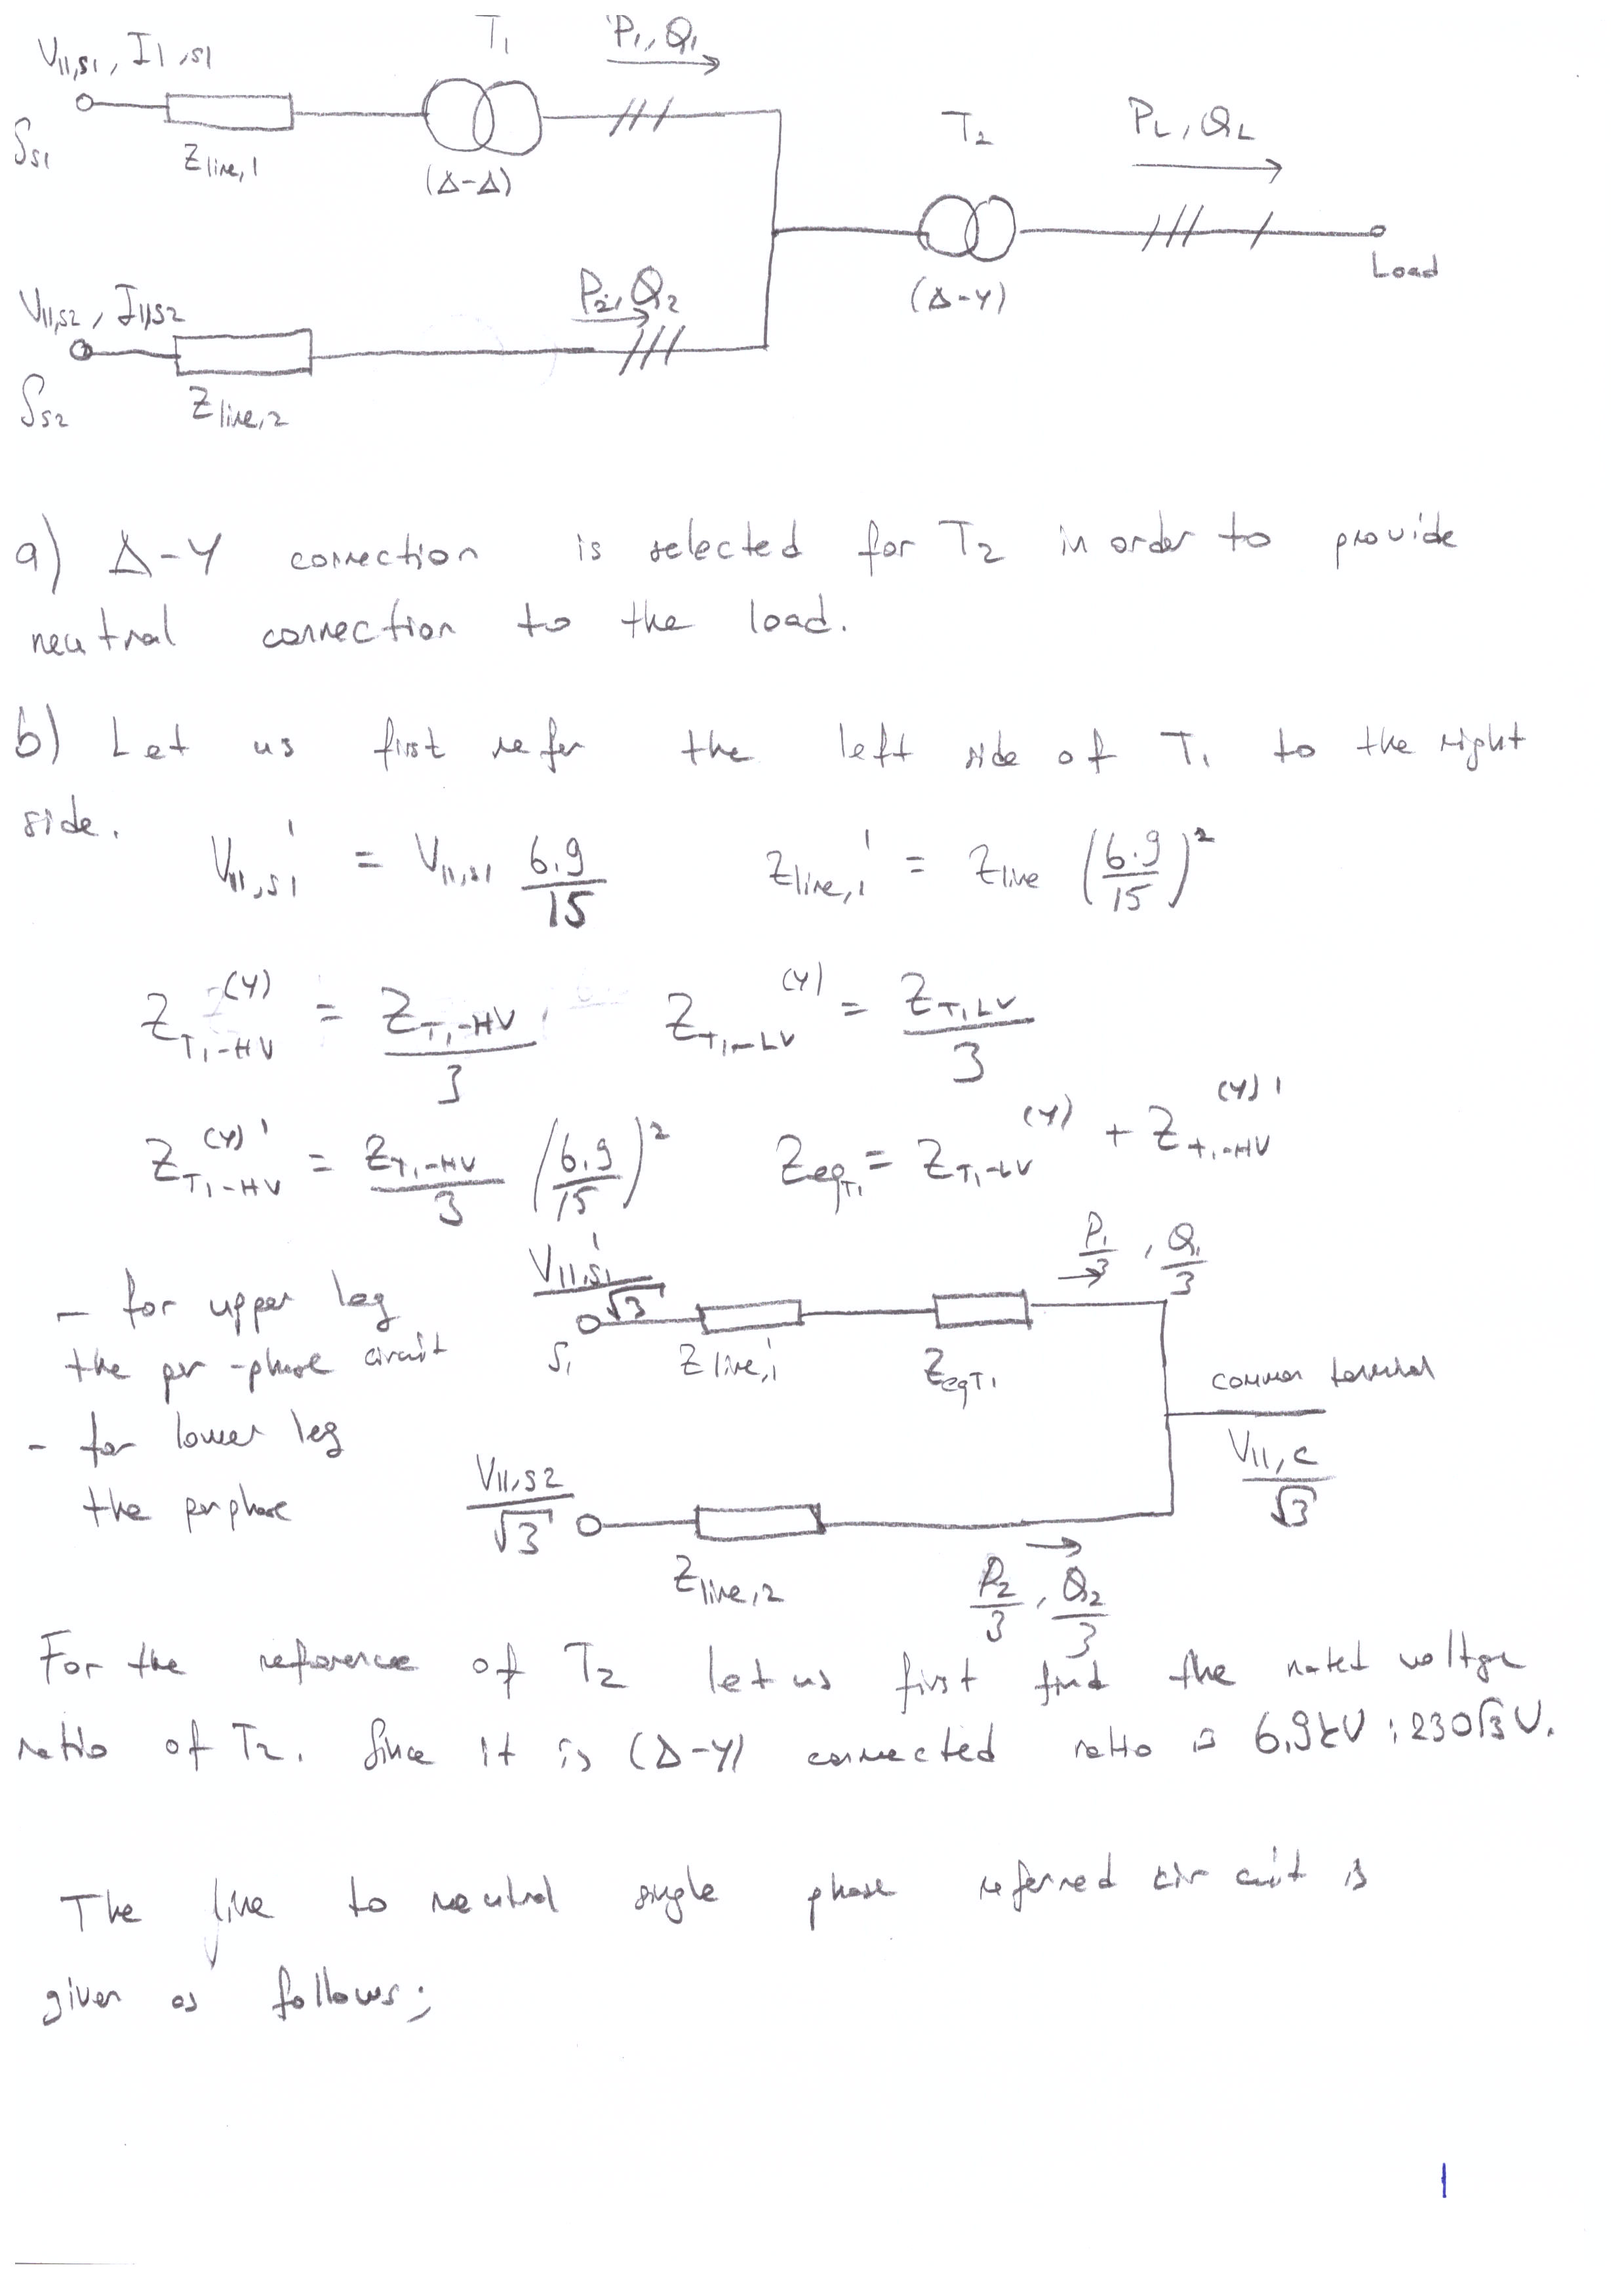 V₁₁,s₁ , I₁,s₁
T₁
P₁, Q₁
S_s1
Z line,1
(Δ-Δ)
T₂
P_L, Q_L
V₁₁,s₂ , I₁₁,s₂
P₂, Q₂
(Δ-Y)
Load
S_s2
Z line,2
a) Δ-Y connection is selected for T₂ in order to provide
neutral connection to the load.
b) Let us first refer the left side of T₁ to the right
side.
V₁₁,s₁' = V₁₁,s₁ 6.9/15    Z line,1' = Z line (6.9/15)²
Z_T₁-HV^(Y) = Z_T₁-HV / 3    Z_T₁-LV^(Y) = Z_T₁LV / 3
Z_T₁-HV^(Y)' = Z_T₁-HV / 3 (6.9/15)²    Z_eqT₁ = Z_T₁-LV^(Y) + Z_T₁-HV^(Y)'
- for upper leg
the per-phase circuit
V₁₁,s₁' / √3
S₁
Z line,1'
Z_eqT₁
P₁/3 , Q₁/3
common terminal
V₁₁,c / √3
- for lower leg
the per phase
V₁₁,s₂ / √3
Z line,2
P₂/3 , Q₂/3
For the reference of T₂ let us first find the rated voltage
ratio of T₂. Since it is (Δ-Y) connected ratio is 6.9kV : 230√3 V.
The line to neutral single phase referred circuit is
given as follows;
1